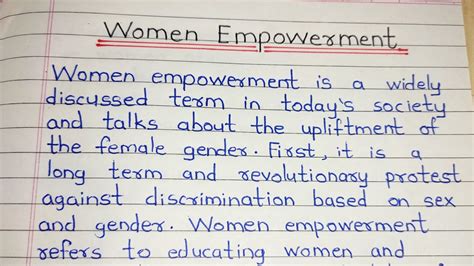 Women Empowerment
Women empowerment is a widely
discussed term in today's society
and talks about the upliftment of
the female gender. First, it is a
long term and revolutionary protest
against discrimination based on sex
and gender. Women empowerment
refers to educating women and